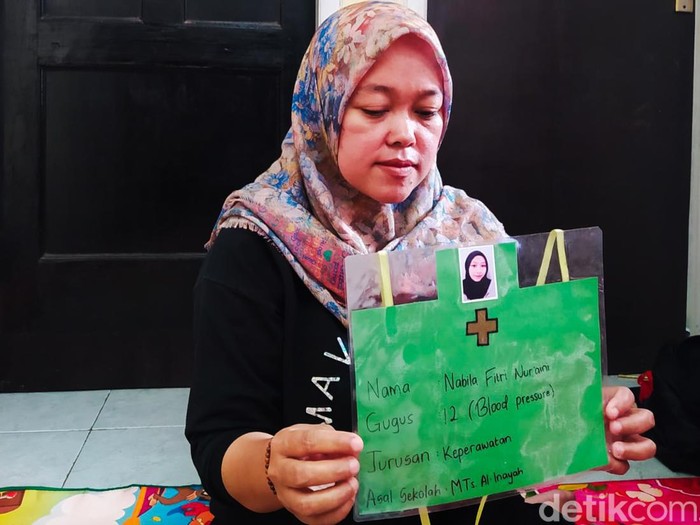 detikcom
MAK
Nama Nabila Fitri Nur'aini
Gugus 12 (Blood pressure)
Jurusan : Keperawatan
Asal Sekolah : MTs. Al-Inayah
detikcom